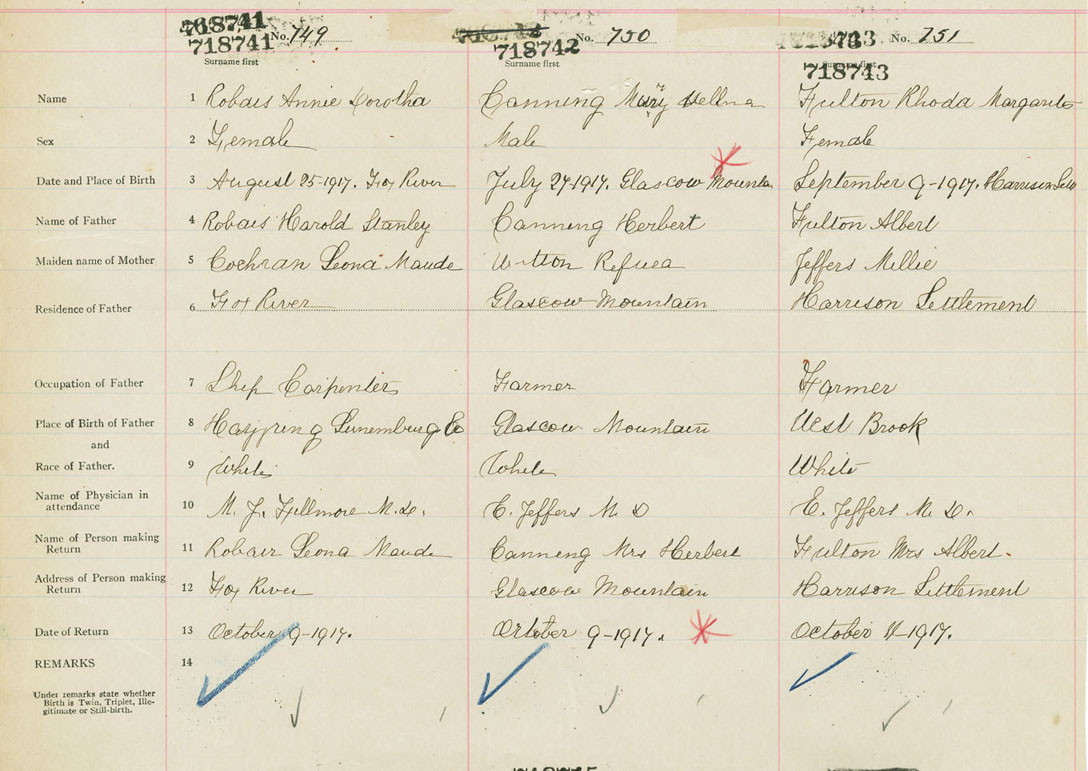 718741 718742 718743
718741 No. 749 718742 No. 750 718743 No. 751
Surname first Surname first Surname first
Name 1 Robais Annie Dorotha Canning Mary Vellma Fulton Rhoda Margarete
Sex 2 Female Male Female
Date and Place of Birth 3 August 25-1917. Fox River July 27-1917. Glascow Mounta September 9-1917. Harrison Set
Name of Father 4 Robais Harold Stanley Canning Herbert Fulton Albert
Maiden name of Mother 5 Cochran Leona Maude Refuea Jeffers Millie
Residence of Father 6 Fox River Glascow Mountain Harrison Settlement
Occupation of Father 7 Ship Carpenter Farmer Farmer
Place of Birth of Father 8 Lunemburg Co Glascow Mountain West Brook
and
Race of Father. 9 White White White
Name of Physician in
attendance 10 M. J. Fillmore M.D. E. Jeffers M D E. Jeffers M. D.
Name of Person making
Return 11 Robair Leona Maude Canning Mrs Herbert Fulton Mrs Albert.
Address of Person making
Return 12 Fox River Glascow Mountain Harrison Settlement
Date of Return 13 October 9-1917. October 9-1917. October 4-1917.
REMARKS 14
Under remarks state whether
Birth is Twin, Triplet, Ille-
gitimate or Still-birth.